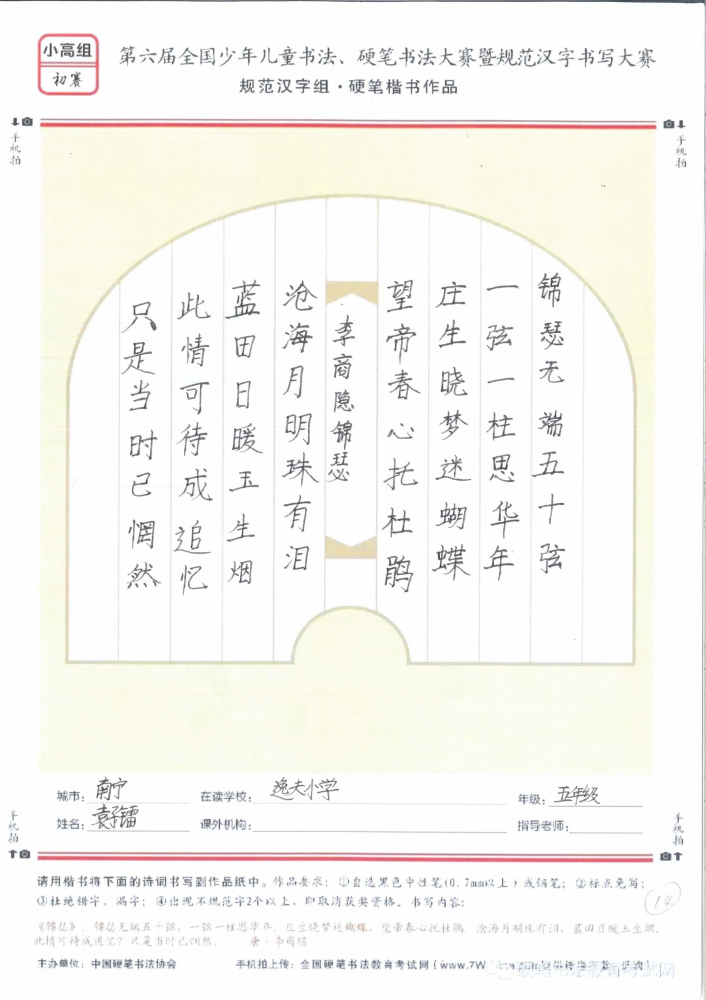 小高组
初赛
第六届全国少年儿童书法、硬笔书法大赛暨规范汉字书写大赛
规范汉字组·硬笔楷书作品
手机拍
手机拍
锦瑟无端五十弦
一弦一柱思华年
庄生晓梦迷蝴蝶
望帝春心托杜鹃
李商隐锦瑟
沧海月明珠有泪
蓝田日暖玉生烟
此情可待成追忆
只是当时已惘然
城市：南宁
在读学校：逸夫小学
年级：五年级
姓名：袁
课外机构：
指导老师：
手机拍
手机拍
请用楷书将下面的诗词书写到作品纸中。作品要求：①自选黑色中性笔(0.7mm以上)或钢笔；②标点免写；
③杜绝错字、漏字；④出现不规范字2个以上，即取消获奖资格。书写内容：
14
《锦瑟》：锦瑟无端五十弦，一弦一柱思华年。庄生晓梦迷蝴蝶，望帝春心托杜鹃。沧海月明珠有泪，蓝田日暖玉生烟。
此情可待成追忆？只是当时已惘然。——唐·李商隐
主办单位：中国硬笔书法协会
手机拍上传：全国硬笔书法教育考试网（www.7W
硬笔书法教育考试网